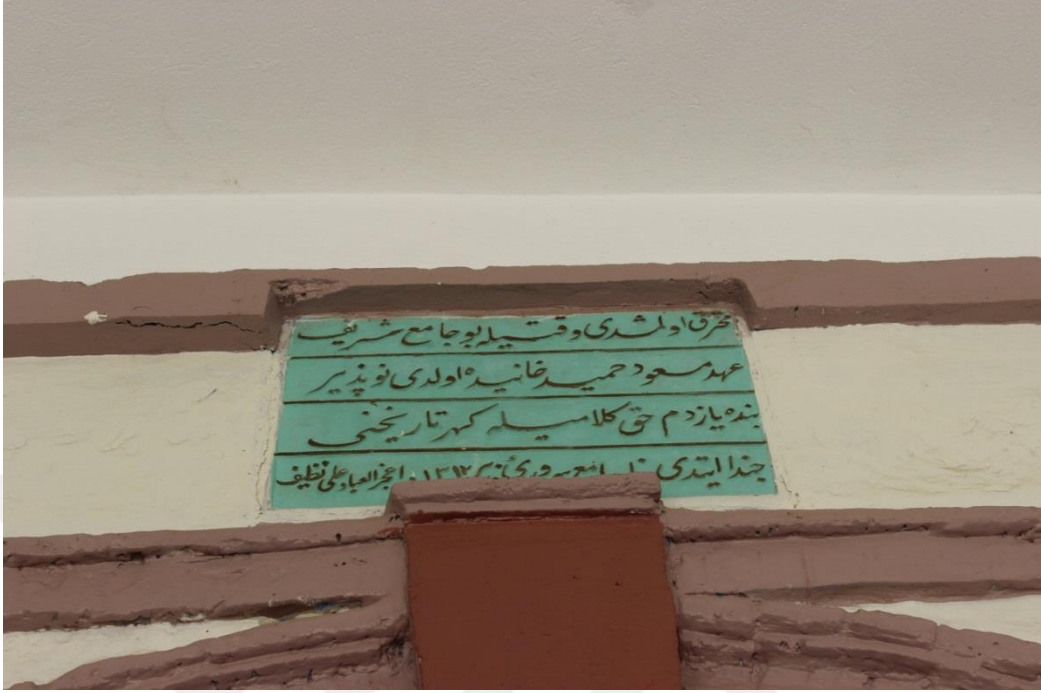 محترق اولمشدی وقتیله بو جامع شریف
عهد مسعود حمید خانیده اولدی نوپذیر
بنده یازدم حق کلامیله کهر تاریخنی
جندا ایتدی ١٣١٢ اعجز العباد علی نظیف